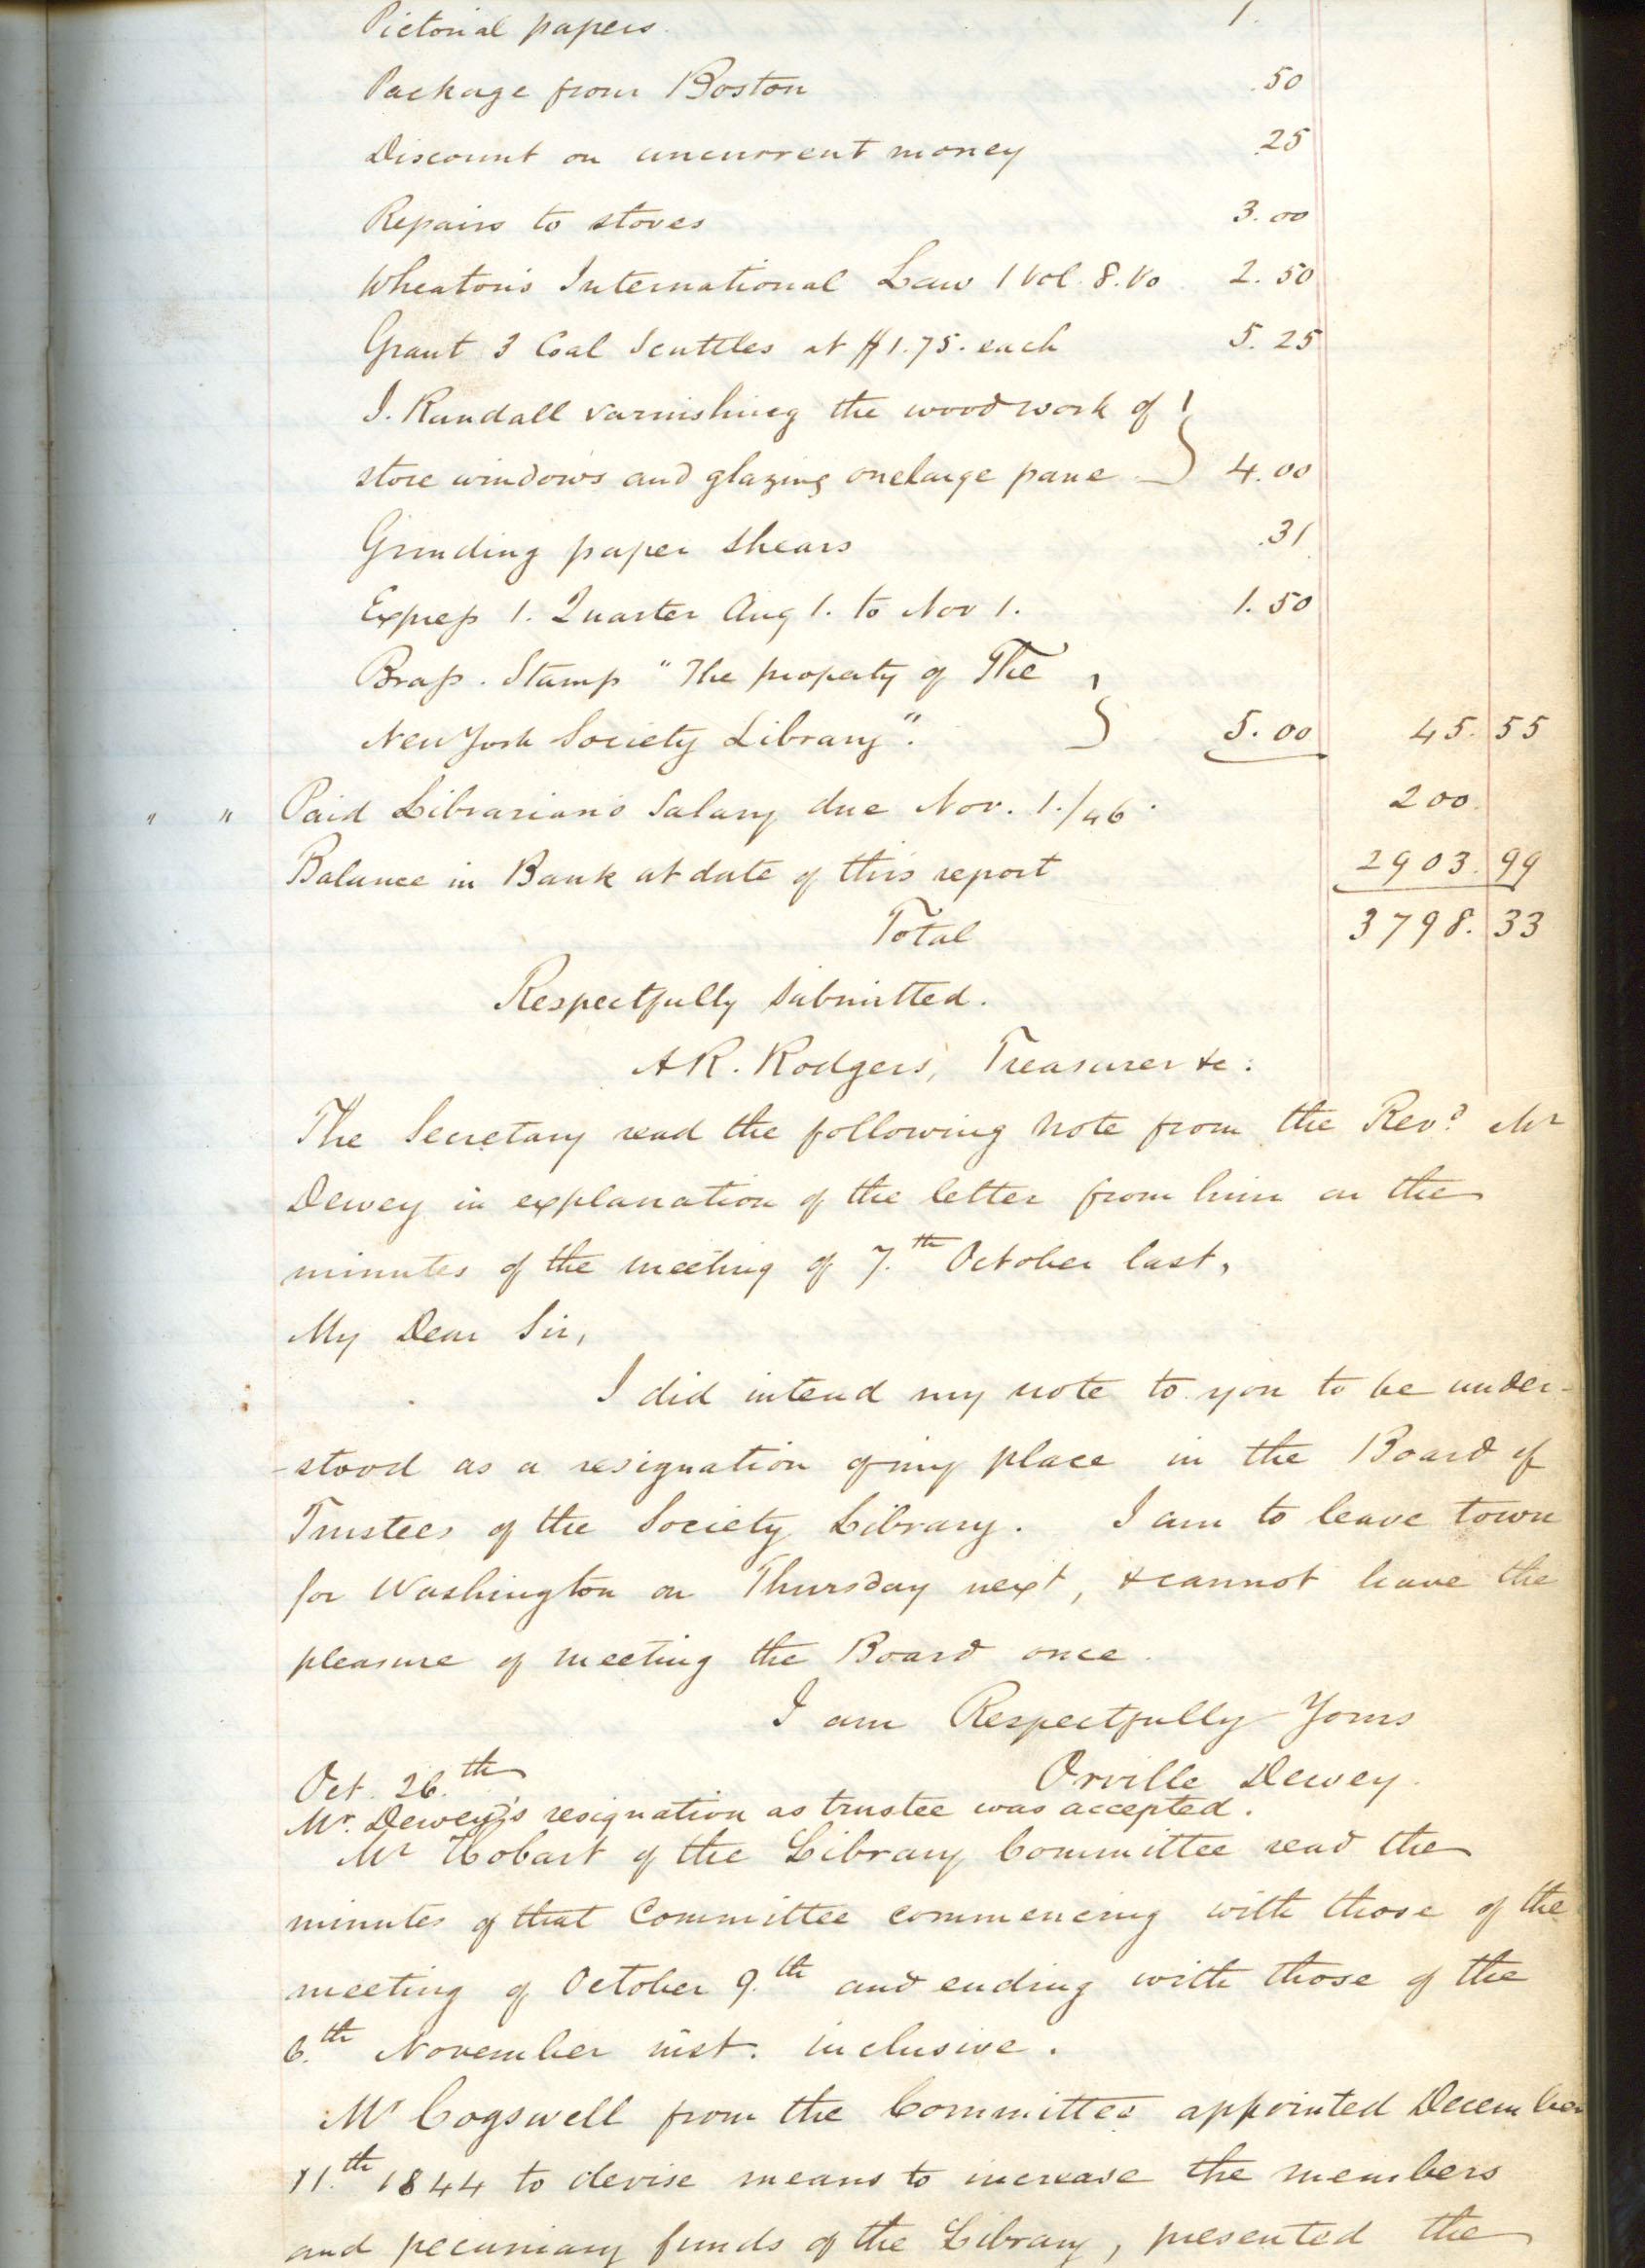 Pictorial papers. 1.
Package from Boston .50
Discount on uncurrent money .25
Repairs to stoves 3.00
Wheaton's International Law 1 Vol. 8.Vo 2.50
Grant 3 Coal Scuttles at $1.75. each 5.25
I. Randall varnishing the wood work of
store windows and glazing one large pane 4.00
Grinding paper shears .31
Express 1. Quarter Aug 1. to Nov 1. 1.50
Brass. Stamp "The property of The
New York Society Library". 5.00 45.55
" " Paid Librarian's Salary due Nov. 1./46. 200.
Balance in Bank at date of this report 2903.99
Total 3798.33
Respectfully submitted.
A R. Rodgers, Treasurer &c:
The Secretary read the following note from the Revd. Mr
Dewey in explanation of the letter from him on the
minutes of the meeting of 7.th October last,
My Dear Sir,
I did intend my note to you to be under-
-stood as a resignation of my place in the Board of
Trustees of the Society Library. I am to leave town
for Washington on Thursday next, & cannot have the
pleasure of meeting the Board once.
I am Respectfully Yours
Orville Dewey.
Oct. 26.th
Mr. Dewey's resignation as trustee was accepted.
Mr Hobart of the Library Committee read the
minutes of that Committee commencing with those of the
meeting of October 9.th and ending with those of the
6.th November inst. inclusive.
Mr Cogswell from the Committee appointed December
11.th 1844 to devise means to increase the members
and pecuniary funds of the Library, presented the